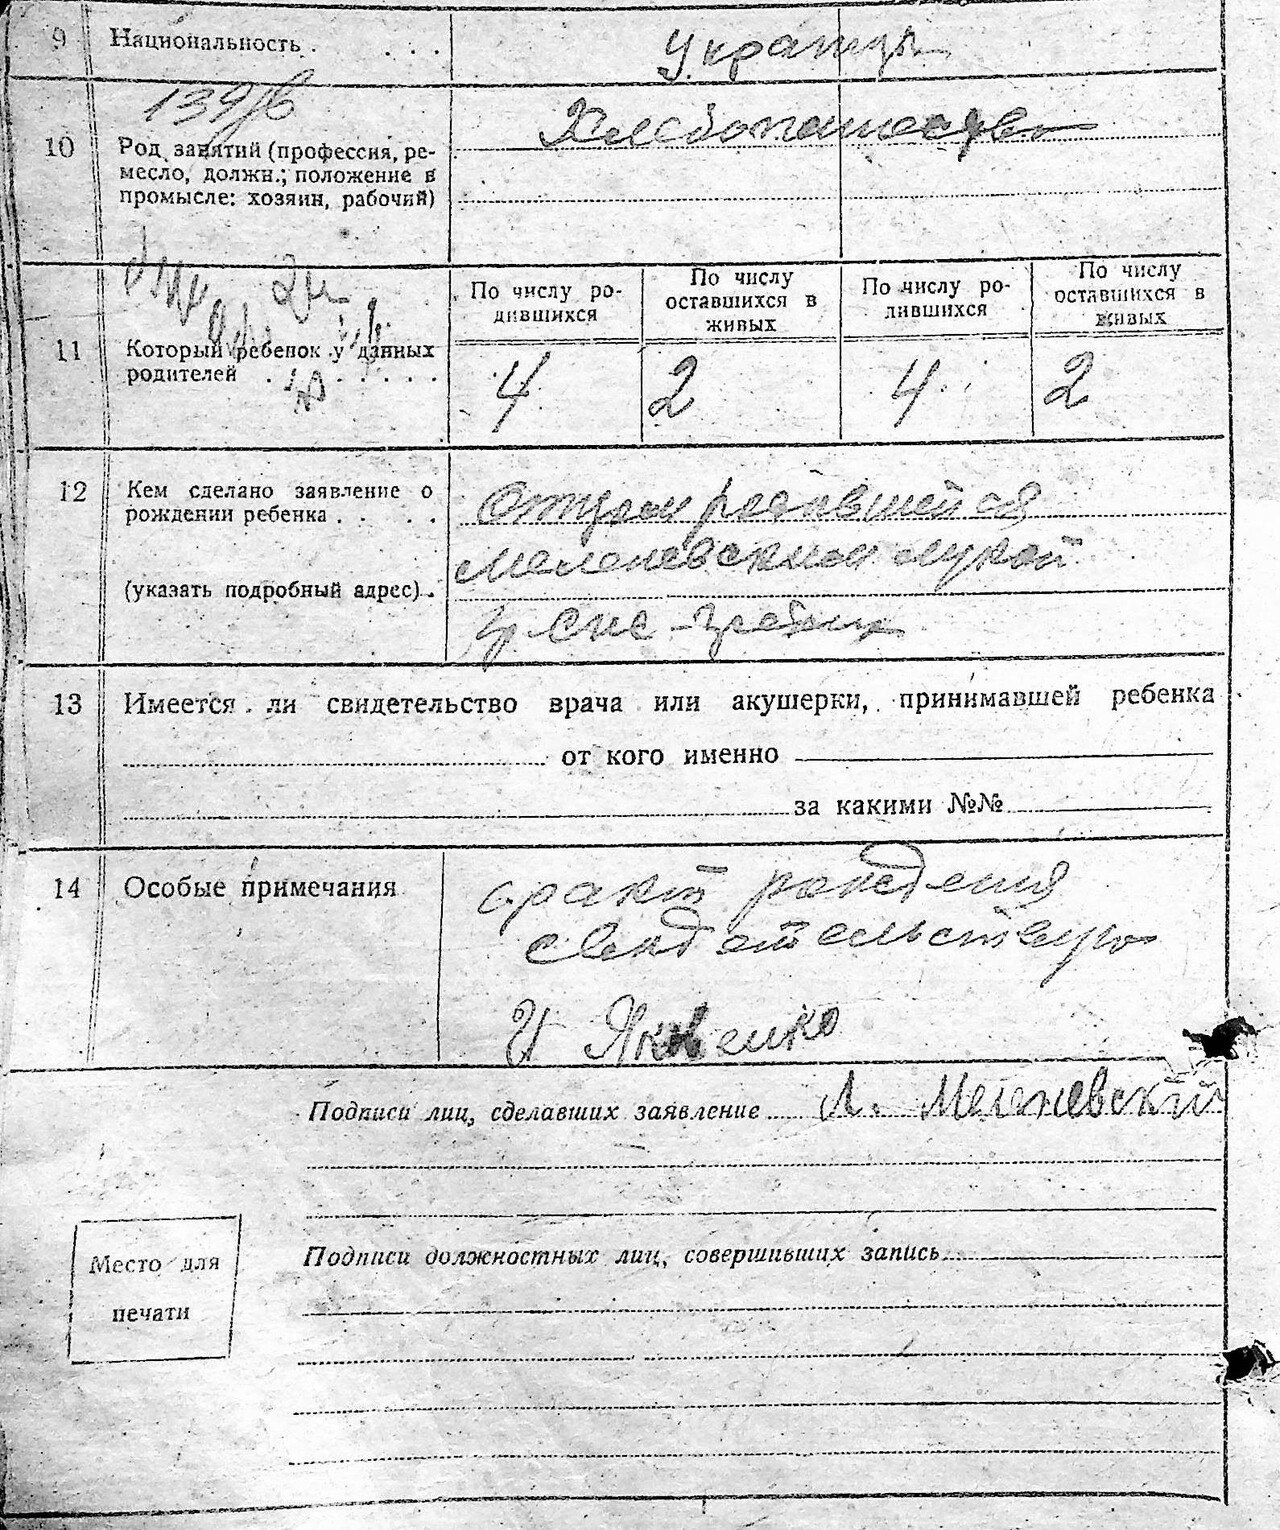 9 Национальность . . . . украинцы
10 Род занятий (профессия, ре-
месло, должн.; положение в
промысле: хозяин, рабочий)
Хлебопашество
11 Который ребенок у данных
родителей . . . . . . .
По числу ро-
дившихся
По числу
оставшихся в
живых
По числу ро-
дившихся
По числу
оставшихся в
живых
4 2 4 2
12 Кем сделано заявление о
рождении ребенка . . . .
(указать подробный адрес) .
Отцом родившейся
Меленевским Лукой
13 Имеется ли свидетельство врача или акушерки, принимавшей ребенка
от кого именно
за какими №№
14 Особые примечания
факт рождения
свидетельствую
И Яковенко
Подписи лиц, сделавших заявление Л. Меленевский
Подписи должностных лиц, совершивших запись
Место для
печати